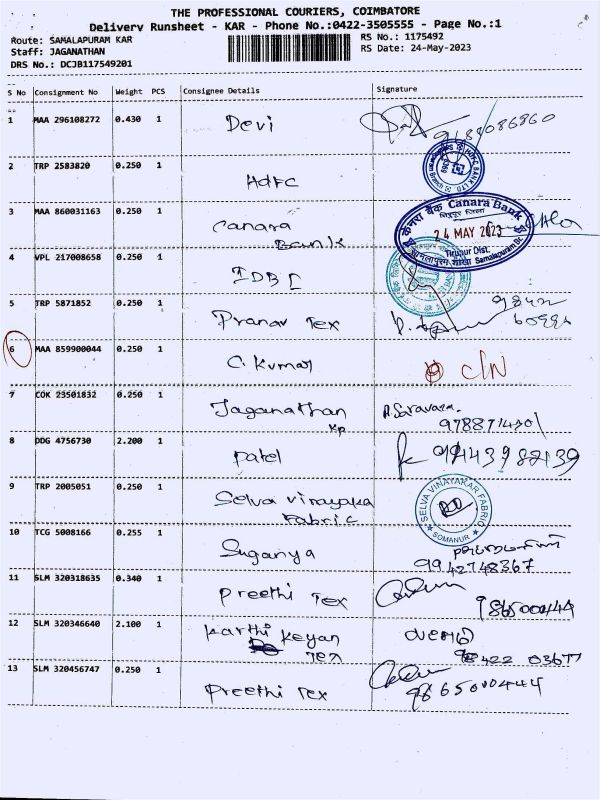 THE PROFESSIONAL COURIERS, COIMBATORE
Delivery Runsheet - KAR - Phone No.:0422-3505555 - Page No.:1
Route: SAMALAPURAM KAR
RS No.: 1175492
Staff: JAGANATHAN
RS Date: 24-May-2023
DRS No.: DCJB117549201
S No Consignment No Weight PCS Consignee Details Signature
1 MAA 296108272 0.430 1 Devi 9184086860
2 TRP 2583820 0.250 1 HDFC
HDFC BANK LTD
3 MAA 860031163 0.250 1 Canara
Bank
केनरा बैंक Canara Bank
24 MAY 2023
Tirupur Dist.
Samalapuram Br.
4 VPL 217008658 0.250 1 IDBI
5 TRP 5871852 0.250 1 Pranav Tex
6 MAA 859900044 0.250 1 C. Kumar C/N
7 COK 23501832 0.250 1 Jaganathan
KP
8 DDG 4756730 2.200 1 Patel 9443982139
9 TRP 2005051 0.250 1 Selva Vinayaka
Fabric
SELVA VINAYAKAR FABRIC
SOMANUR
10 TCG 5008166 0.255 1 Suganya
9942748367
11 SLM 320318635 0.340 1 Preethi Tex
986500444
12 SLM 320346640 2.100 1 Karthi Keyan
Tex
13 SLM 320456747 0.250 1 Preethi Tex
9865000444